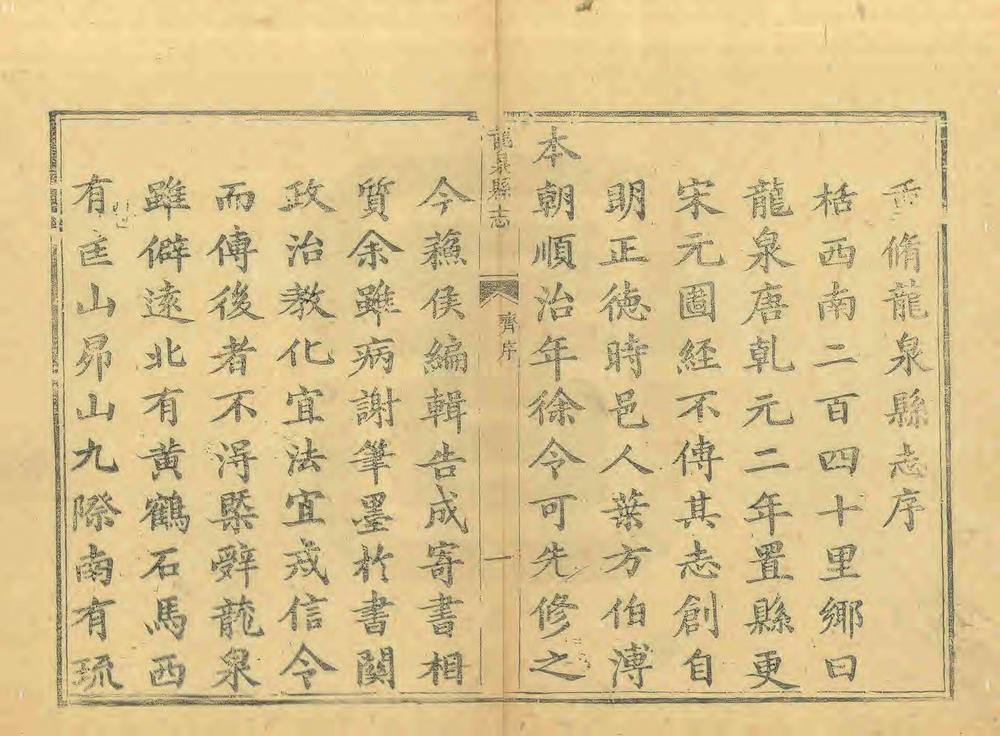 重脩龍泉縣志序
栝西南二百四十里鄉曰
龍泉唐乹元二年置縣更
宋元圖経不傳其志創自
明正徳時邑人葉方伯溥
本朝順治年徐令可先修之
龍泉縣志
齊序
一
今蘓侯編輯告成寄書相
質余雖病謝筆墨扵書関
政治教化宜法宜戒信令
而傳後者不淂槩辤龍泉
雖僻逺北有黄鶴石馬西
有匡山昴山九際南有琉